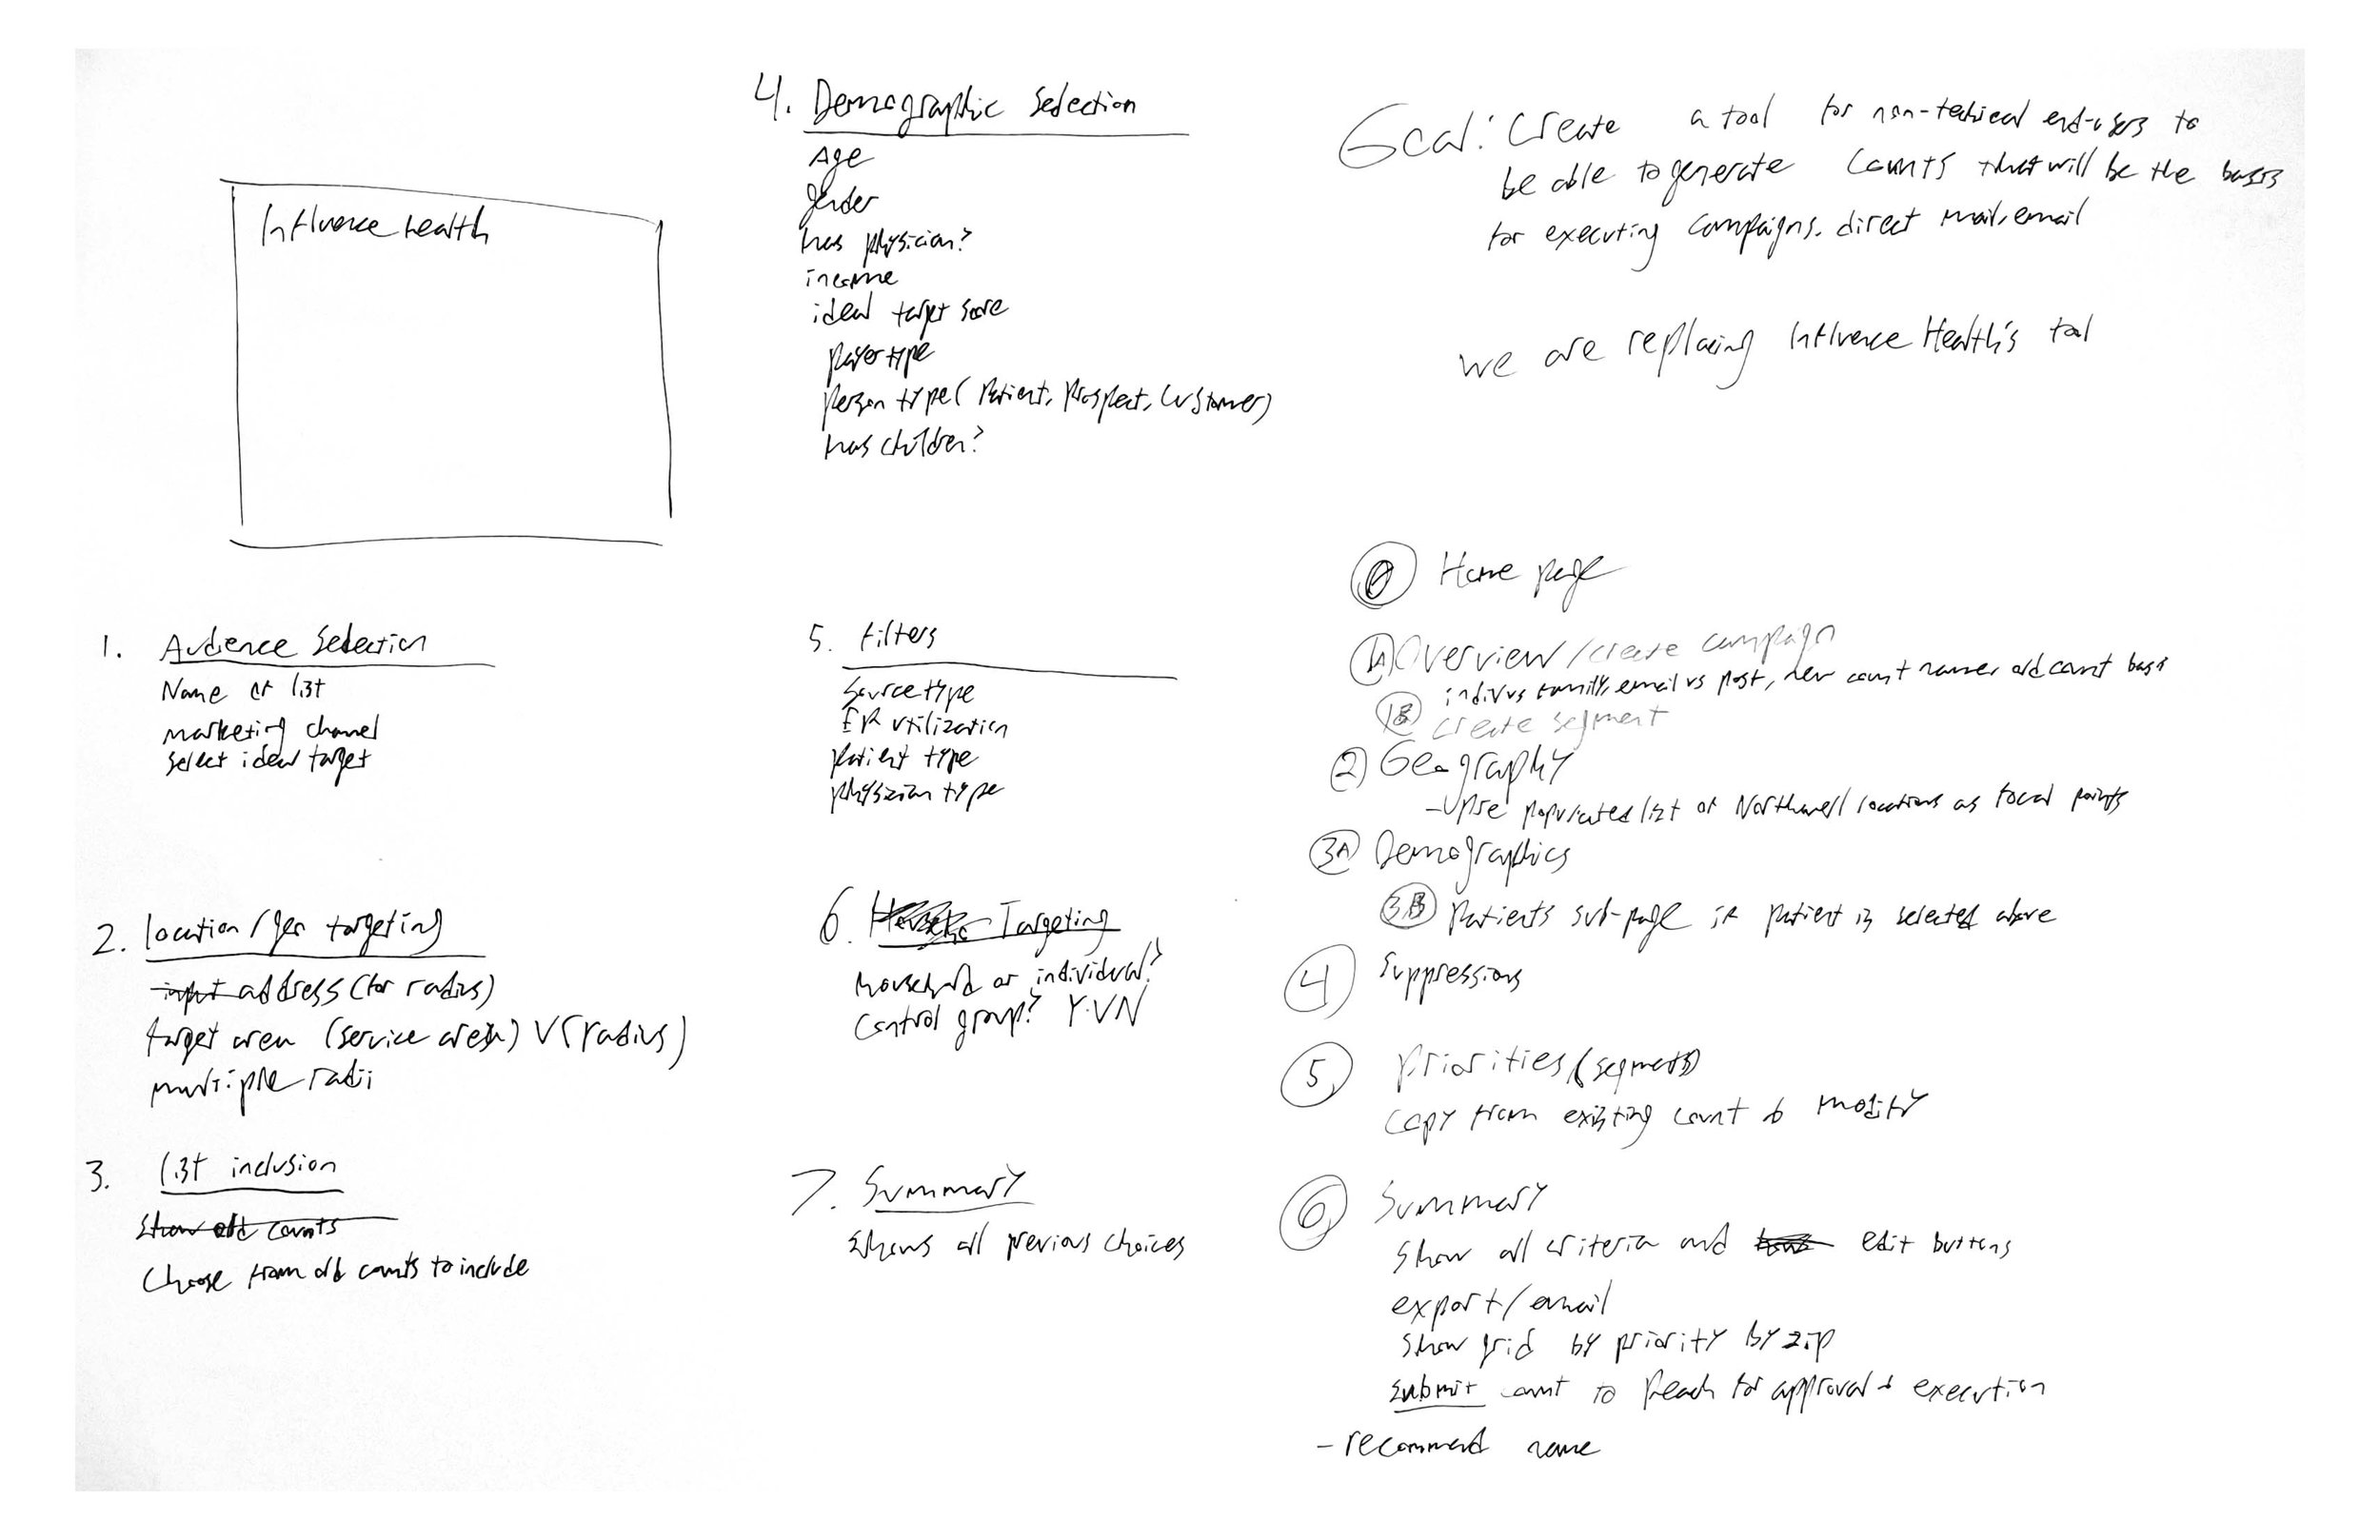 Influence health
1. Audience Selection
Name of list
marketing channel
select ideal target
2. location/geo targeting
input address (for radius)
target area (service area) V (radius)
multiple radii
3. list inclusion
Show old counts
Choose from old counts to include
4. Demographic Selection
Age
gender
has physician?
income
ideal target score
payer type
person type (Patient, Prospect, Customer)
has children?
5. filters
Source type
ER utilization
patient type
physician type
6. Targeting
household or individual?
Control group? Y V N
7. Summary
Shows all previous choices
Goal: Create a tool for non-techical end-users to
be able to generate counts that will be the basis
for executing campaigns. direct mail, email
we are replacing Influence Health's tool
0 Home page
1A Overview/create campaign
indiv vs family, email vs post, new count name, old count basis
1B create segment
2 Geography
- populated list of Northwell locations as focal points
3A Demographics
3B Patients sub-page if patient is selected above
4 Suppressions
5 Priorities (segments)
copy from existing count & modify
6 Summary
Show all criteria and edit buttons
export/email
Show grid by priority by zip
submit count to for approval & execution
- recommend name